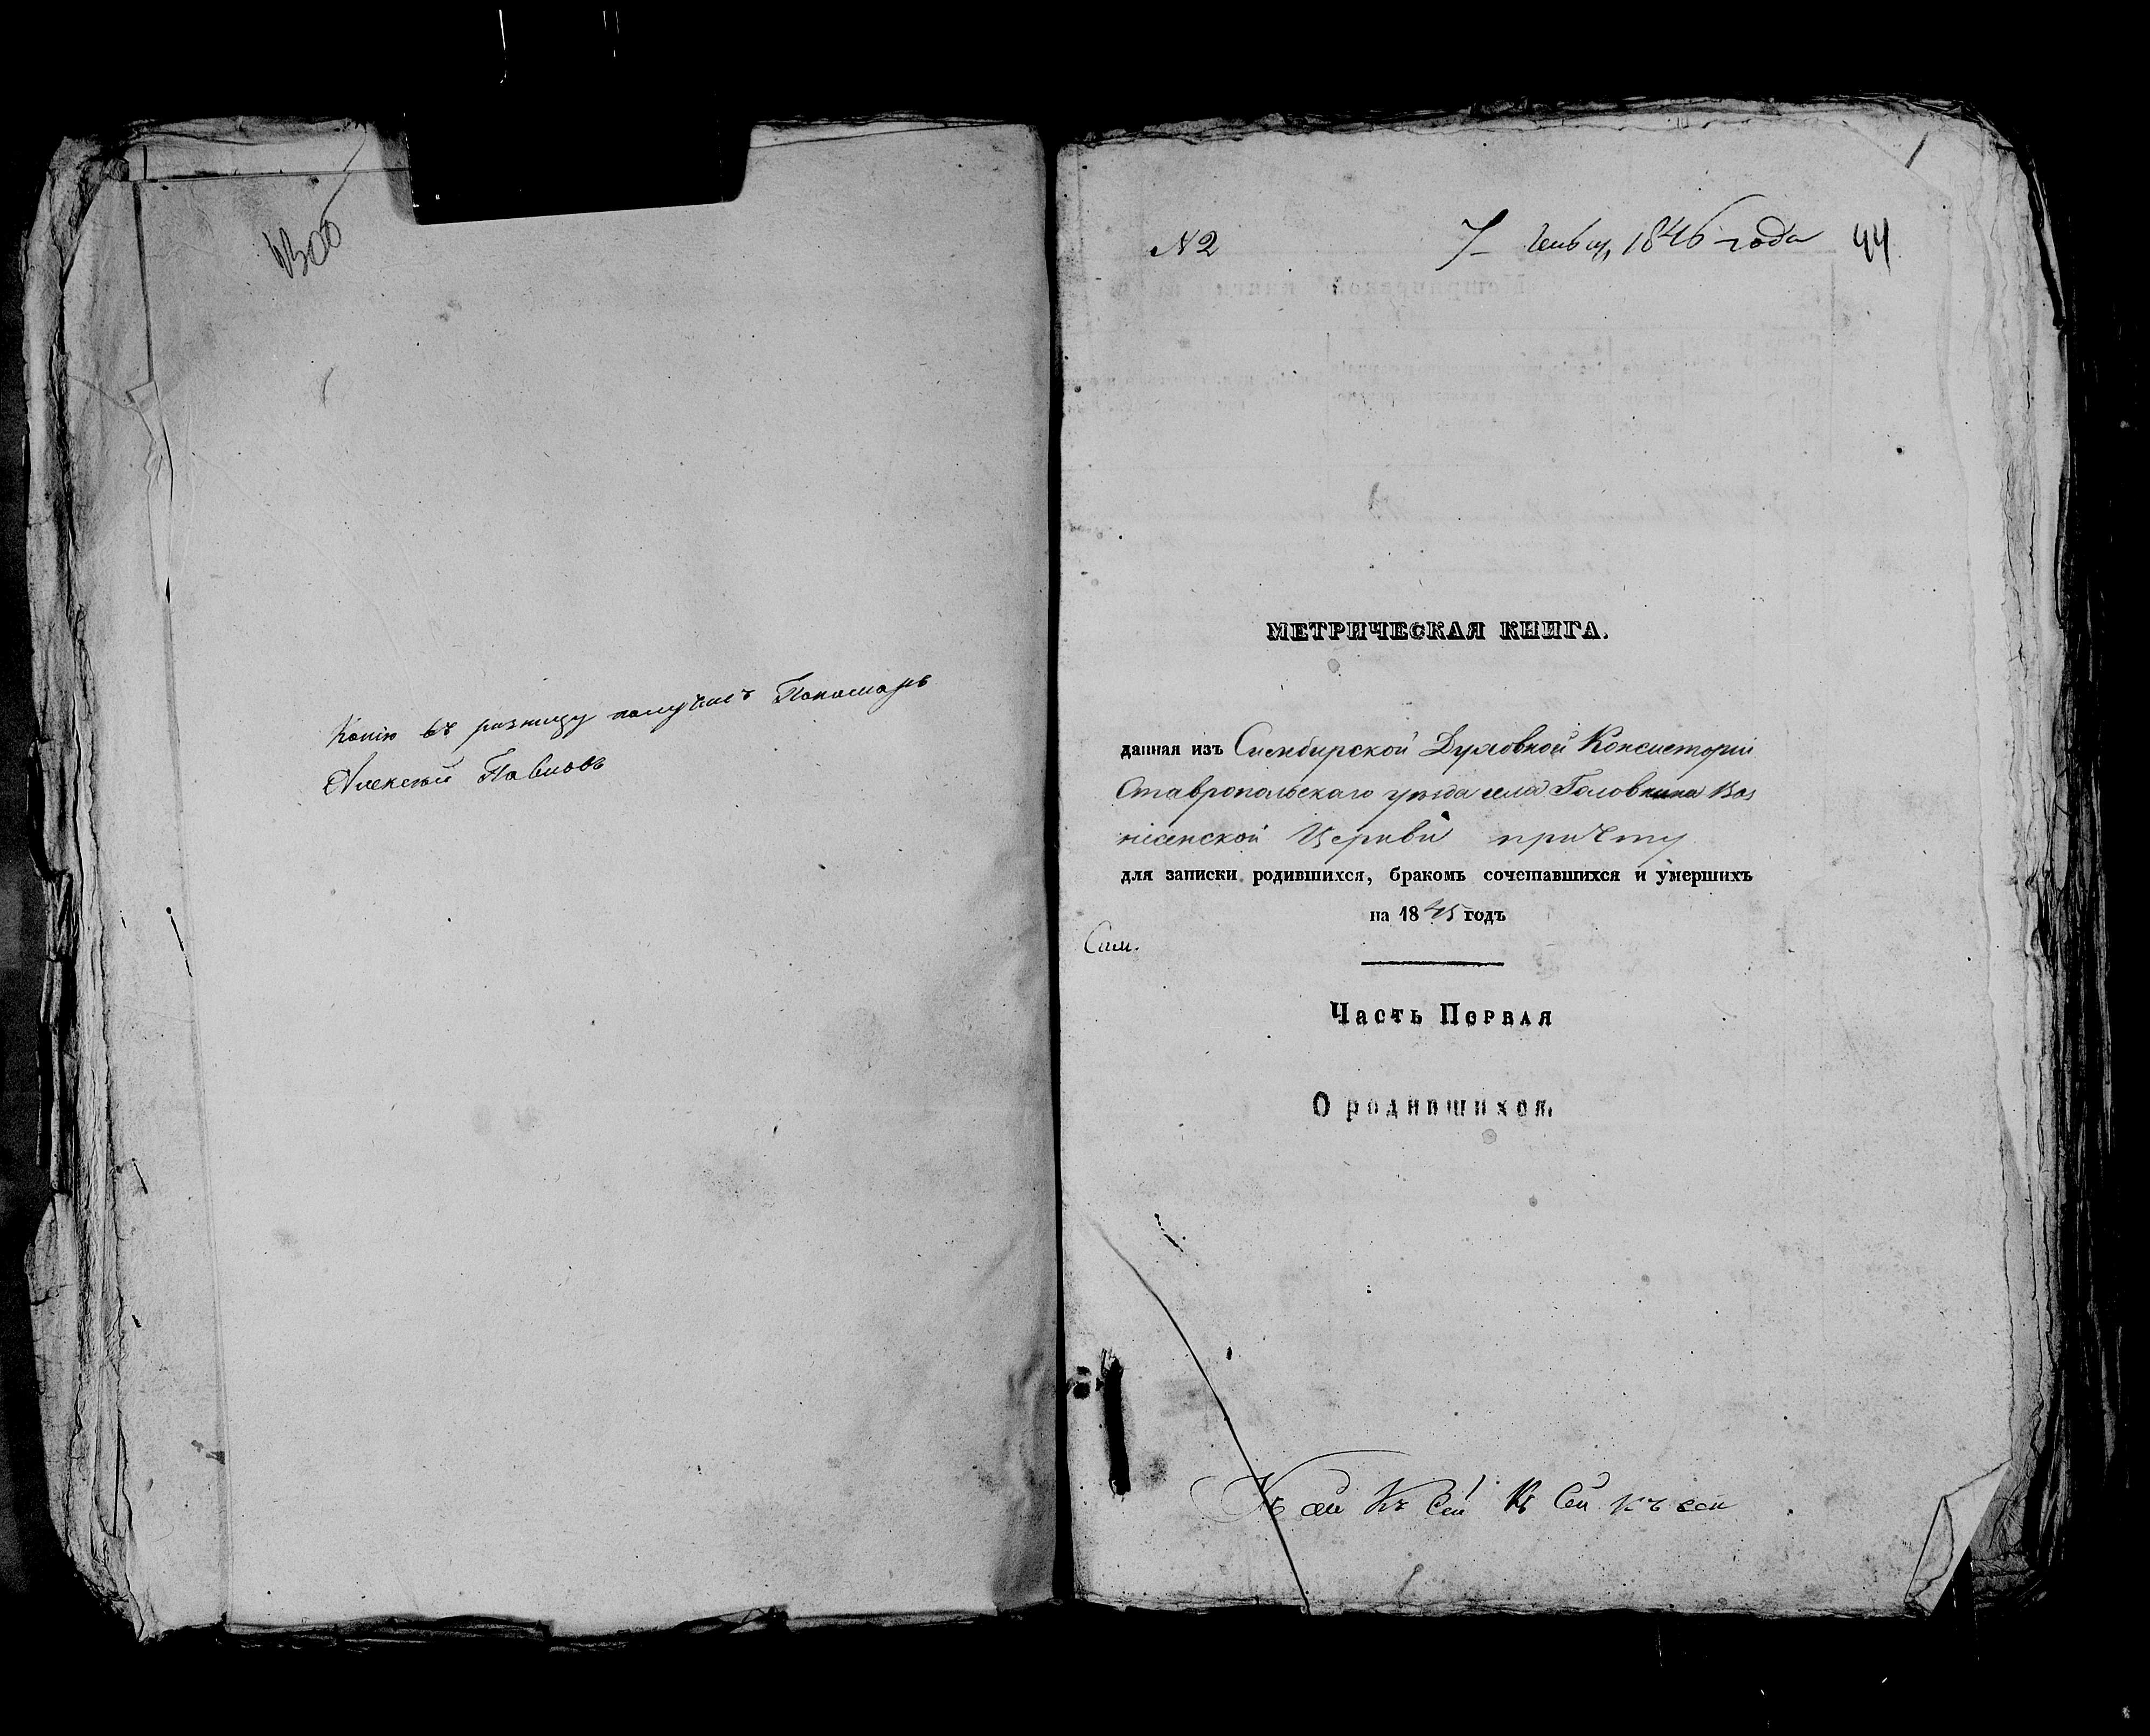 Копію въ ризницу получилъ Пономарь
Алексѣй Павловъ
№ 2
7 Генв. 1846 года
44
МЕТРИЧЕСКАЯ КНИГА.
данная изъ Симбирской Духовной Консисторіи
Ставропольскаго уѣзда села Головкина Воз
несенской Церкви причту
для записки родившихся, бракомъ сочетавшихся и умершихъ
на 1845 годъ
Сим.
Часть Первая
О родившихся.
Къ сей Къ сей Къ сей къ сей